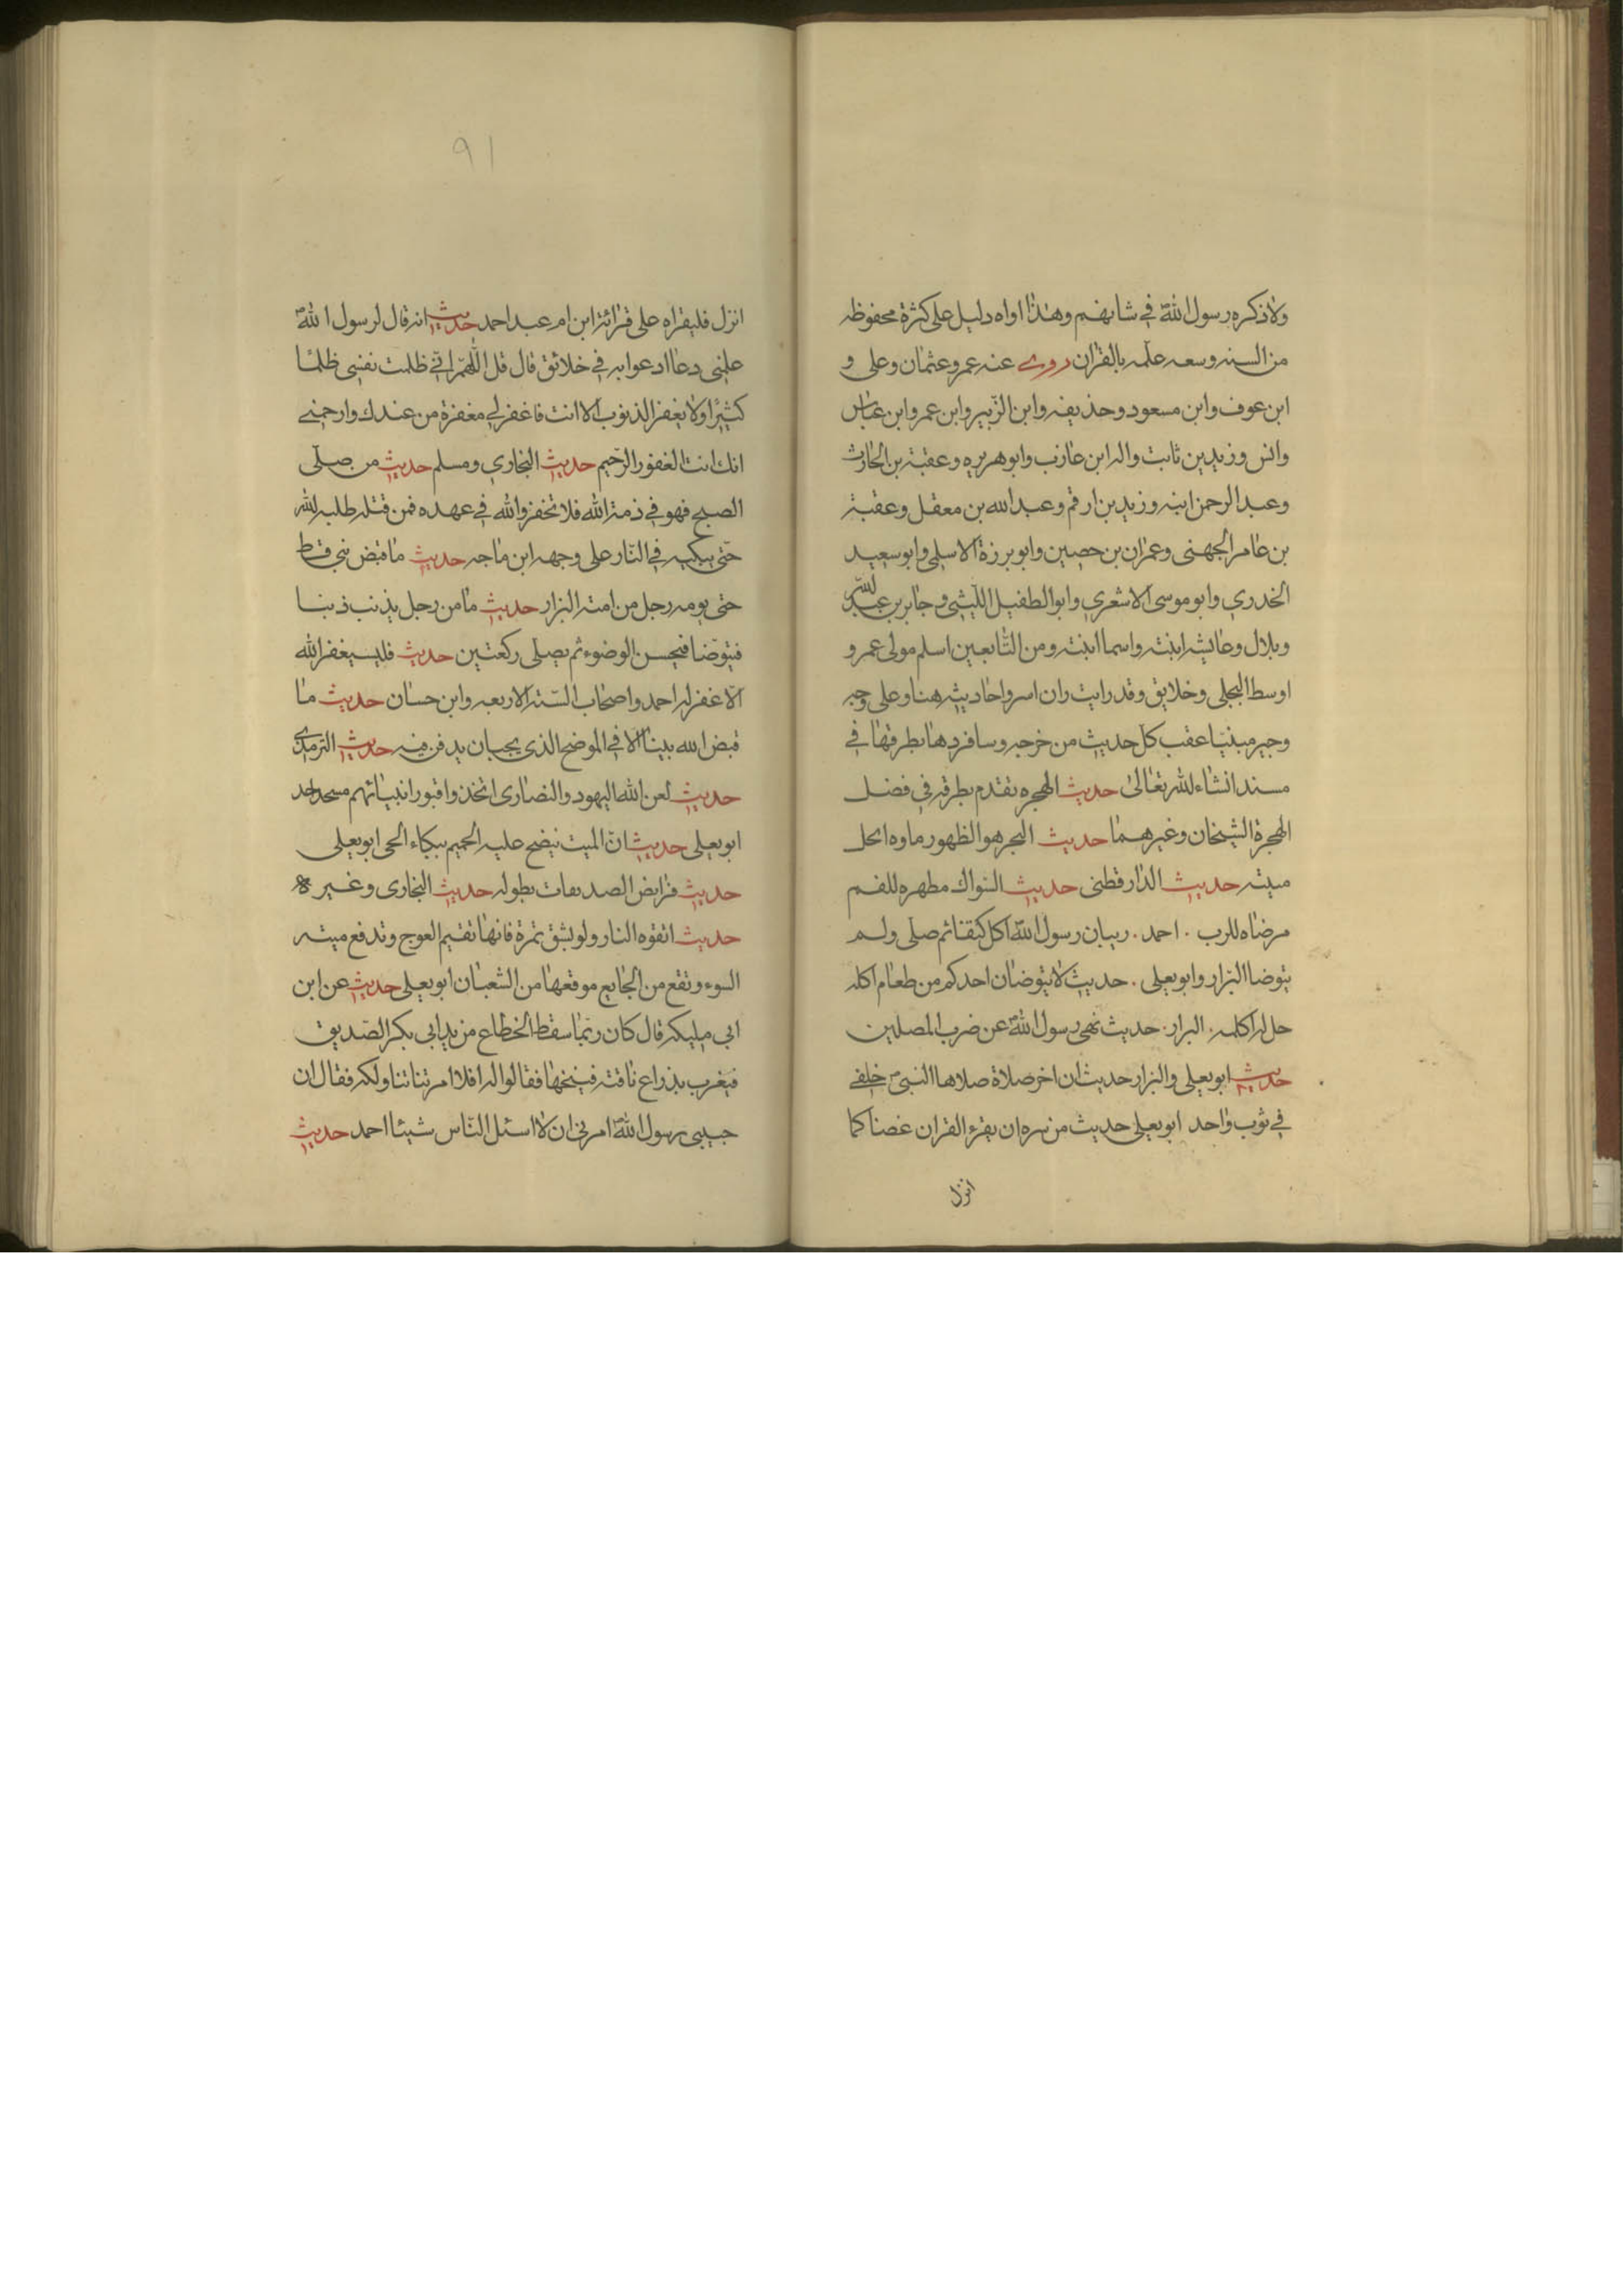 ولا ذكره رسول اللهؐ في شانهم وهذا اواه دليل على كثرة محفوظه
من السنه وسعه علمه بالقران روى عنه عمرو عثمان وعلى و
ابن عوف وابن مسعود وحذيفه وابن الزبير وابن عمر وابن عباس
وانس وزيد بن ثابت والبرا بن عازب وابو هريره وعقبة بن الحارث
وعبد الرحمن ابنه وزيد بن ارقم وعبد الله بن معقل وعقبة
بن عامر الجهنى وعمران بن حصين وابو برزة الاسلمى وابو سعيد
الخدري وابو موسى الاشعري وابو الطفيل الليثى وجابر بن عبد الله
وبلال وعايشه ابنته واسما ابنته ومن التابعين اسلم مولى عمر و
اوسط البجلى وخلايق وقد رايت ان اسرد احاديثه هنا وعلى وجه
وجيز مبينا عقب كل حديث من خرجه وسافردها بطرقها في
مسند انشاء الله تعالى حديث الهجره تقدم بطرقه في فضل
الهجرة الشيخان وغيرهما حديث البحر هو الطهور ماوه الحل
ميته حديث الدارقطنى حديث السواك مطهره للفم
مرضاه للرب . احمد . ان رسول اللهؐ اكل كتفا ثم صلى ولم
يتوضا البزار وابو يعلى . حديث لا يتوضان احدكم من طعام اكله
حل له اكلمه . البزار . حديث نهى رسول اللهؐ عن ضرب المصلين
حديث ابو يعلى والبزار حديث ان اخر صلاة صلاها النبىؐ خلفي
في ثوب واحد ابو يعلى حديث من سره ان يقرء القران غضا كما
انزل
٩١
انزل فليقراه على قرائة ابن ام عبد احمد حديث انه قال لرسول اللهؐ
علمنى دعا ادعوا به في خلائق قال قل اللهم انى ظلمت نفسى ظلما
كثيرا ولا يغفر الذنوب الا انت فاغفر لي مغفرة من عندك وارحمني
انك انت الغفور الرحيم حديث البخاري ومسلم حديث من صلى
الصبح فهو في ذمة الله فلا تخفروا الله في عهده فمن قتله طلبه الله
حتى يكبه في النار على وجهه ابن ماجه حديث ما قبض نبى قط
حتى يومه رجل من امته البزار حديث ما من رجل يذنب ذنبا
فيتوضا فيحسن الوضوء ثم يصلى ركعتين حديث فليستغفر الله
الا غفر له احمد واصحاب السنه الاربعه وابن حسان حديث ما
قبض الله بينا الا في الموضع الذى يجب ان يدفن فيه حديث الترمذى
حديث لعن الله اليهود والنصارى اتخذوا قبور انبيائهم مسجد
ابو يعلى حديث ان الميت ينضح عليه الحميم ببكاء الحى ابو يعلى
حديث فرايض الصدقات بطوله حديث البخارى وغيره
حديث اتقوه النار ولو بشق تمرة فانها تقيم العوج وتدفع ميته
السوء وتقع من الجايع موقعها من الشعبان ابو يعلى حديث عن ابن
ابى مليكه قال كان ربما سقط الخطاع من يد ابى بكر الصديق
فيغرب بذراع ناقته فينخها فقالوا له افلا امرتنا نناولكه فقال ان
حبيبى رسول اللهؐ امرنى ان لا اسئل الناس شيئا احمد حديث